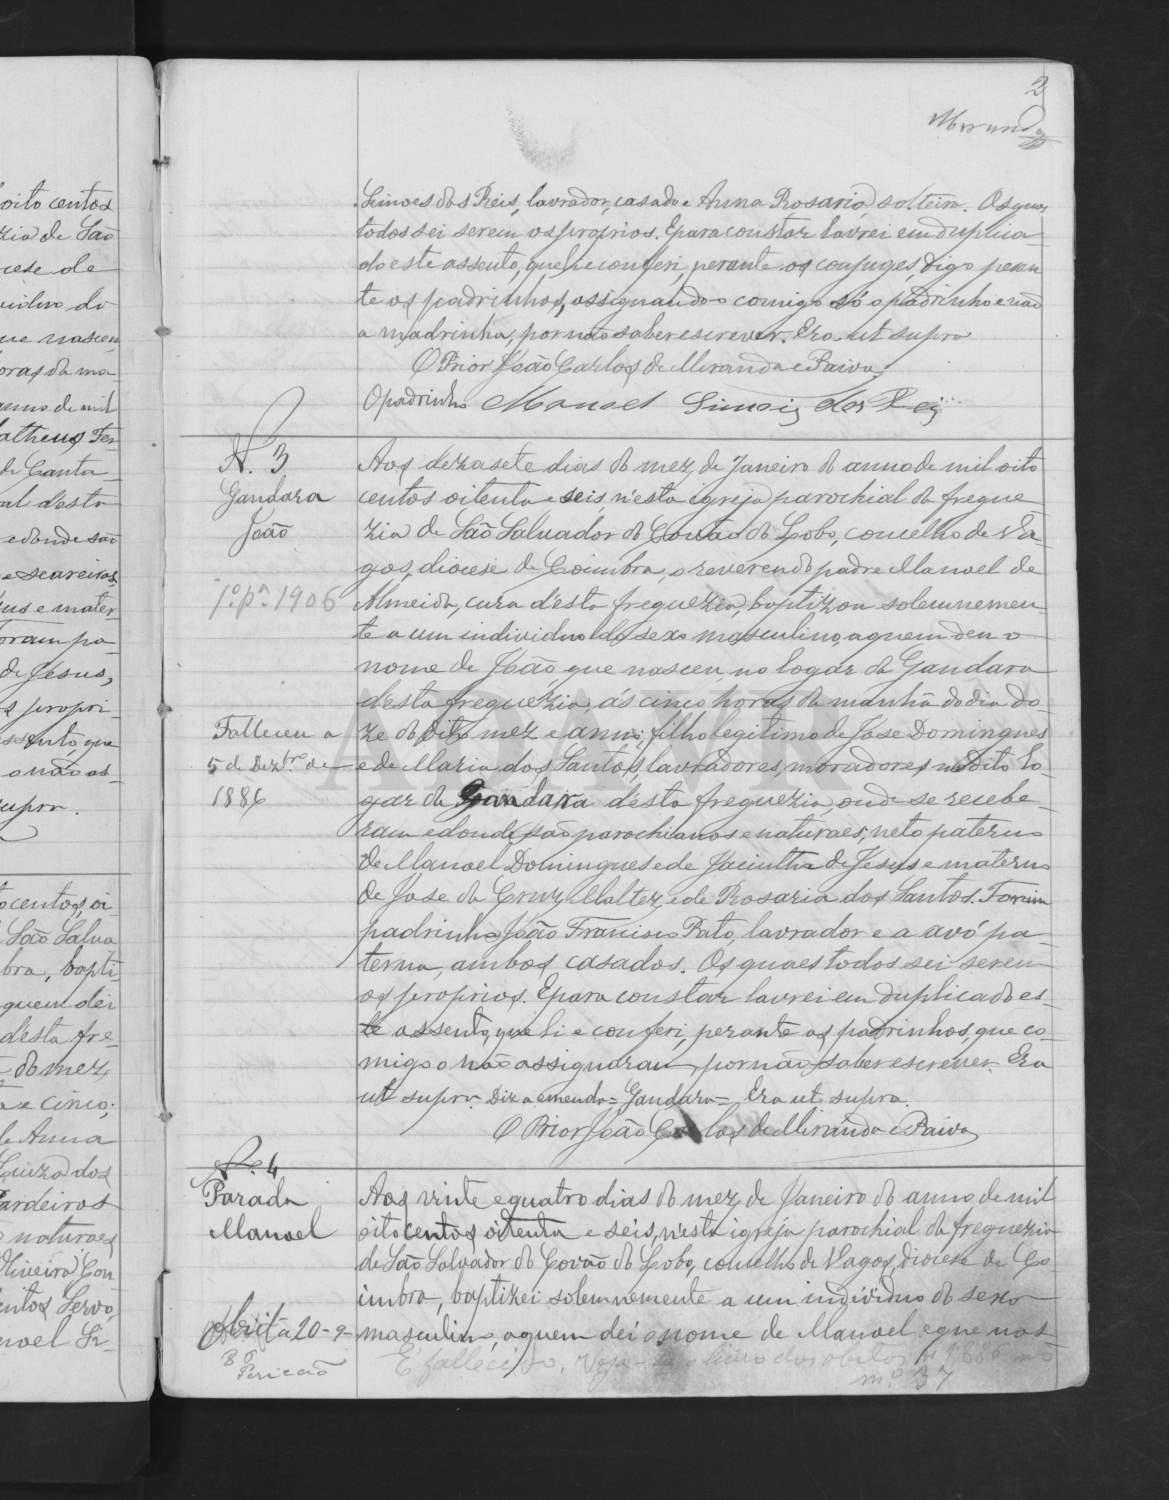 2
Miranda
oito centos
zia de São
cese de
ividuo do
ue nasceu
oras da ma-
anno de mil
Matheus Fer-
de Canta-
al d'esta
e donde são
e seareiros
us e mater-
oram pa-
de Jesus,
s propri-
ssento, que
o não as-
supra.
tocentos, oi-
São Salva
bra, bapti-
quem dei
desta fre-
do mez
ta e cinco,
de Anna
Luiza dos
Pardeiros
naturaes
Oliveira Con
entos Servo,
noel Si-
Simoes dos Reis, lavrador, casado e Anna Rosario, solteira. Os quaes
todos sei serem os proprios. E para constar lavrei em duplica-
do este assento, que li e conferi, perante os conjuges, digo peran-
te os padrinhos, assignando comigo só o padrinho e não
a madrinha, por não saber escrever. Era ut supra
O Prior João Carlos de Miranda e Paiva
O padrinho Manoel Simois dos Reis
N. 3
Gandara
João
1º. pª. 1906
Falleceu a
5 de Dezbrº de
1886
Aos dezasete dias do mez de Janeiro do anno de mil oito
centos oitenta e seis, n'esta igreja parochial da fregue
zia de São Salvador do Covão do Lobo, concelho de Va-
gos, diocese de Coimbra, o reverendo padre Manoel de
Almeida, cura d'esta freguezia, baptizou solemnemen-
te a um individuo do sexo masculino, a quem deu o
nome de João, que nasceu no logar da Gandara
desta freguezia, ás cinco horas da manhã do dia do-
ze do dito mez e anno, filho legitimo de Jose Domingues
e de Maria dos Santos, lavradores, moradores no dito lo-
gar da Gandara d'esta freguezia, onde se recebe-
ram e donde são parochianos e naturaes, neto paterno
de Manoel Domingues e de Jacintha de Jesus e materno
de Jose da Cruz Maltez, e de Rosaria dos Santos. Foram
padrinho João Francisco Rato, lavrador e a avó pa-
terna, ambos casados. Os quaes todos sei serem
os proprios. E para constar lavrei em duplicado es-
te assento, que li e conferi, perante os padrinhos, que co-
migo o não assignaram por não saber escrever. Era
ut supra. Diz a emenda = Gandara = Era ut supra.
O Prior João Carlos de Miranda e Paiva
Nº. 4
Parada
Manoel
20-9-
Aos vinte e quatro dias do mez de Janeiro do anno de mil
oitocentos oitenta e seis, n'esta igreja parochial da freguezia
de São Salvador do Covão do Lobo, concelho de Vagos, diocese de Co
imbra, baptizei solemnemente a um individuo do sexo
masculino, a quem dei o nome de Manoel, e que nas-
É fallecido, Veja-se o livro dos obitos de 1886 no
nº 37
ADAVR